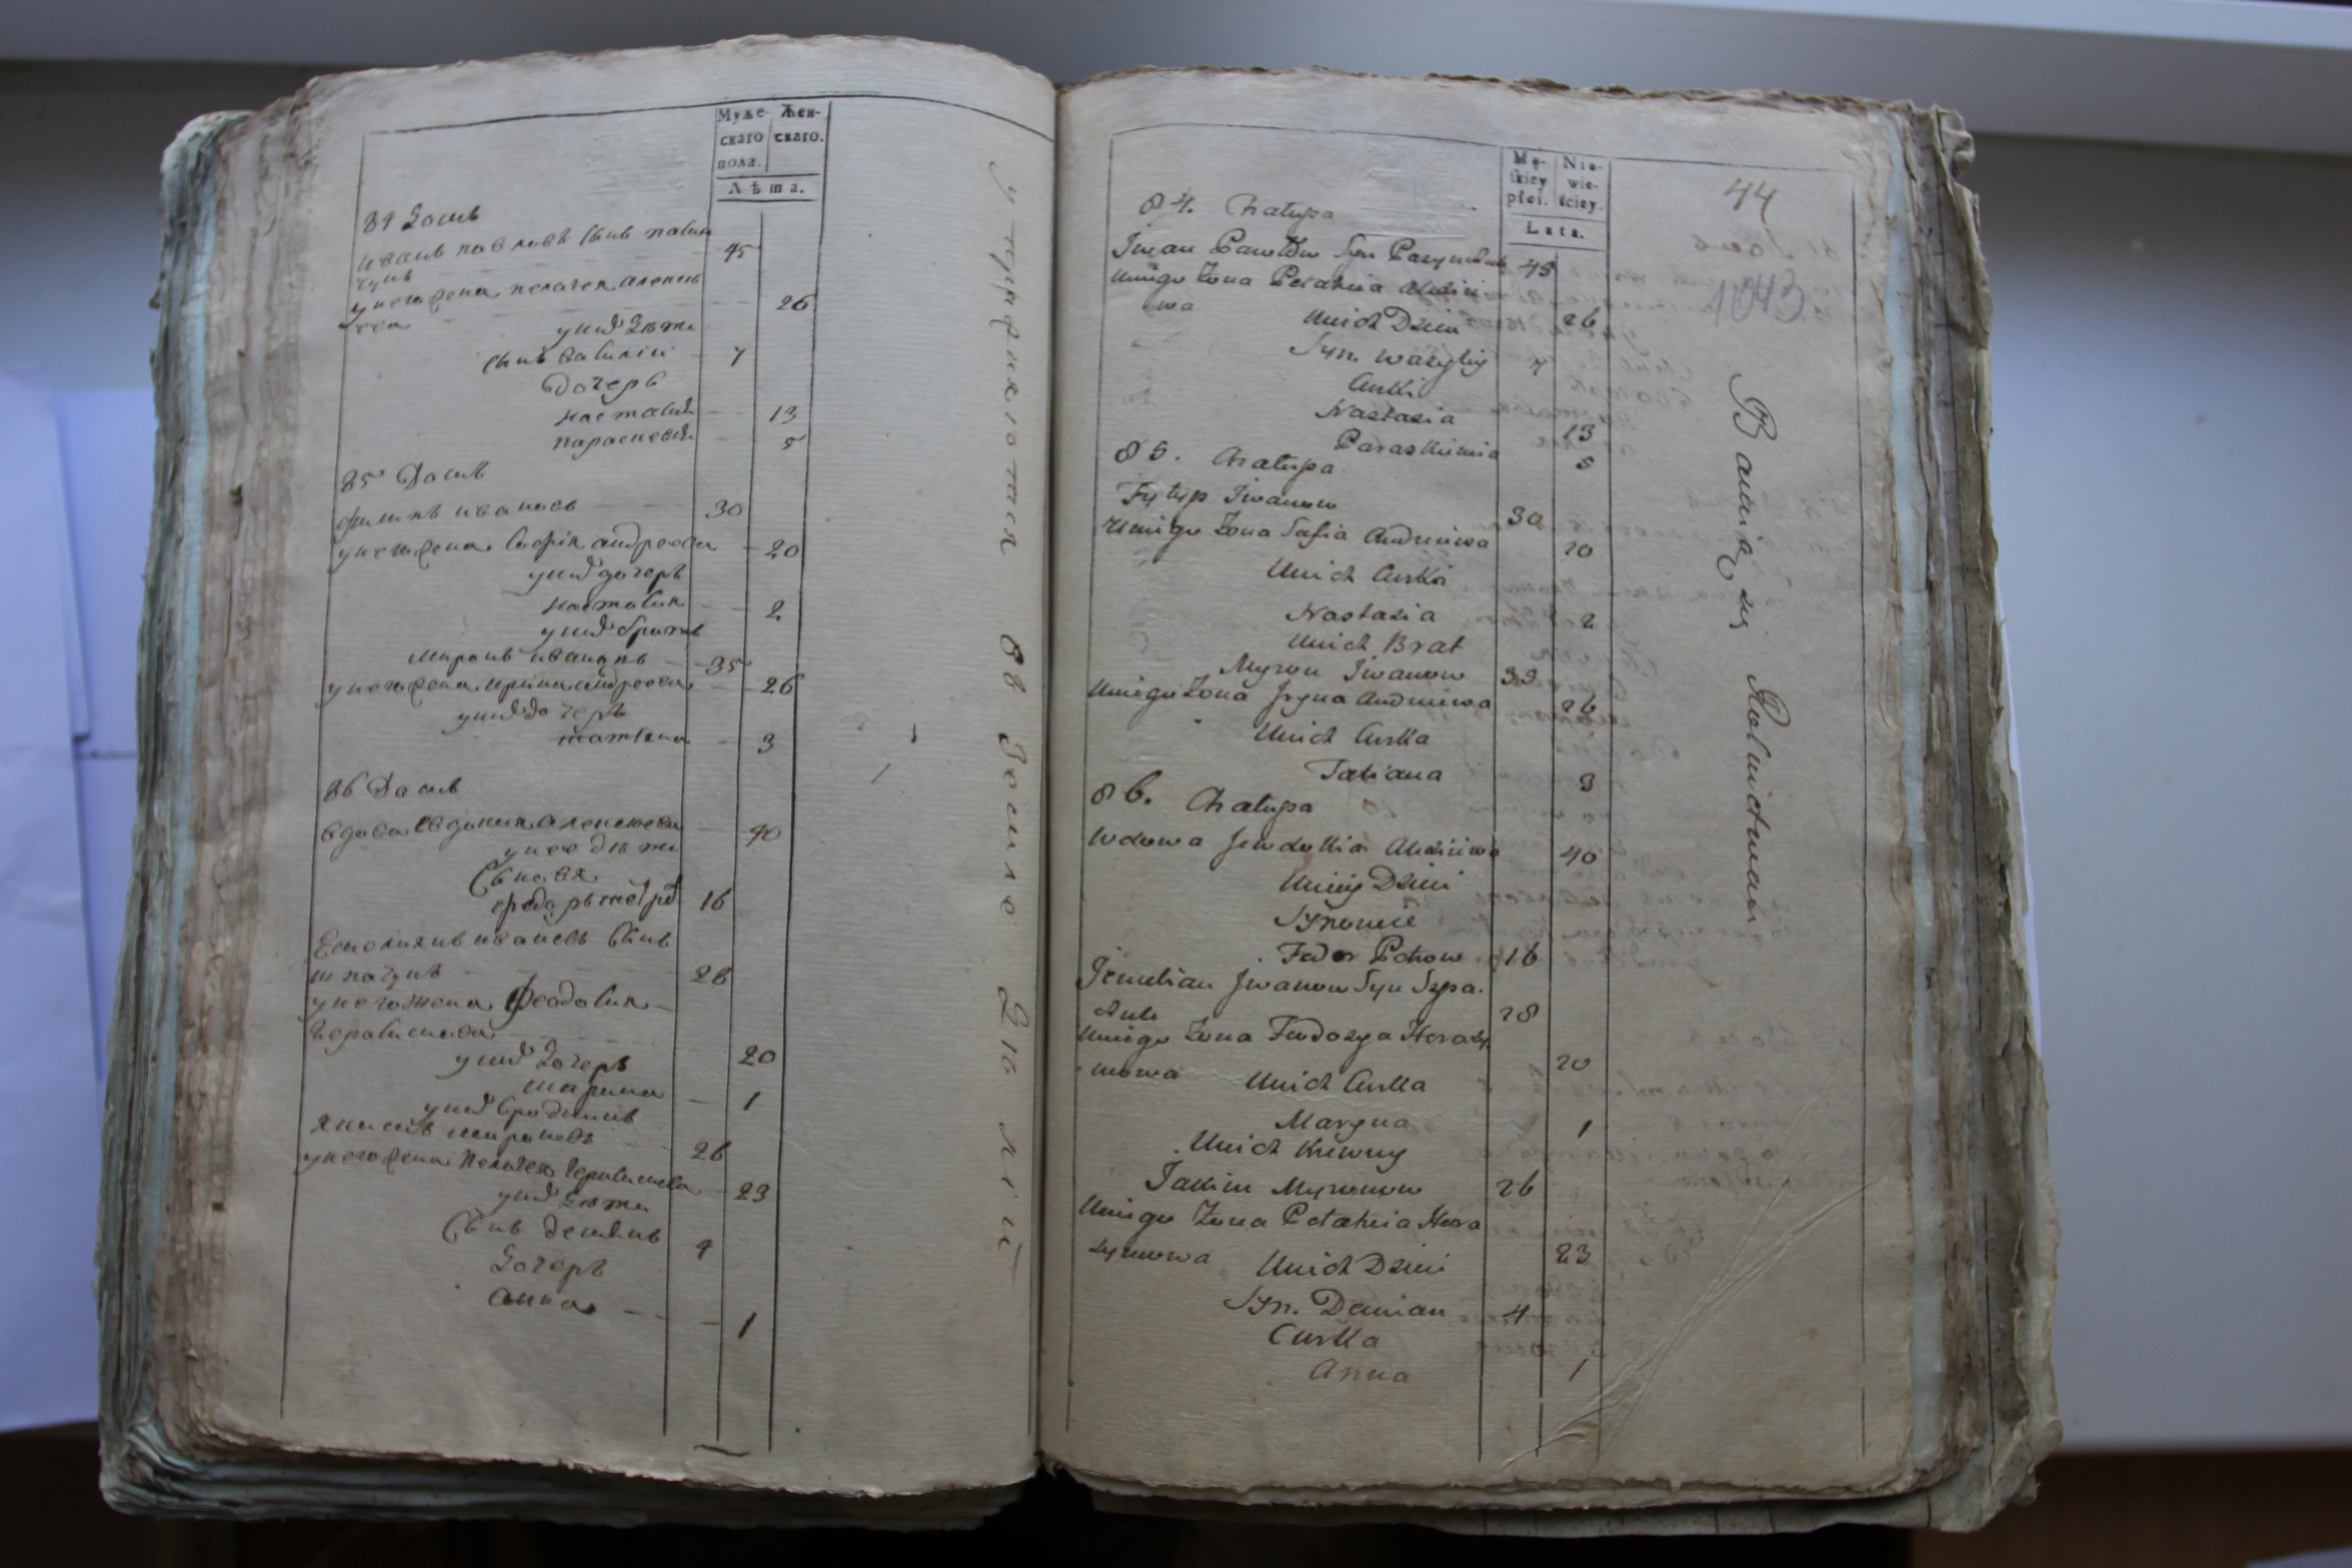 Муже-
скаго
пола.
Жен-
скаго.
Лѣта.
84 Домъ
иванъ павловъ сынъ пасын
чукъ 45
у него жена пелагея алексе
ева 26
у них дѣти
сынъ василий 7
дочерь
настасия 13
парасковия 5
85 Домъ
филипъ ивановъ 30
у него жена софия андреева 20
у них дочерь
настасия 2
у них братъ
миронъ ивановъ 35
у него жена ирина андреева 26
у них дочерь
татияна 3
86 Домъ
вдова Евдокия алексеева 40
у нее дѣти
Сыновя
федоръ петров 16
Емелиянъ ивановъ Сынъ
шпачукъ 28
у него жена Феодосия
Герасимова 20
у них дочерь
марина 1
у них сродникъ
якимъ мироновъ 26
у него жена Пелагея Герасимова 23
у них дѣти
Сынъ демянъ 4
дочерь
анна 1
Mę-
skiey
płci.
Nie-
wie-
ściey.
Lata.
44
1043
84. Chałupa
Iwan Pawłow Syn Pasynczuk 45
Uniego Żona Pełahia Alexie
wa 26
Unich Dzieci
Syn. Wasyliy 7
Curki
Nastasia 13
Paraskiewia 5
85. Chałupa
Fylyp Iwanow 30
Uniego Żona Sofia Andrieiewa 20
Unich Curka
Nastasia 2
Unich Brat
Myron Iwanow 33
Uniego Żona Iryna Andrieiewa 26
Unich Curka
Tatiana 3
86. Chałupa
Wdowa Jewdokia Alexiiewa 40
Unieiy Dzieci
Synowie
Fedor Petrow 16
Jemelian Jwanow Syn Szpa-
czuk 28
Uniego Żona Feodosya Herasy
mowa 20
Unich Curka
Maryna 1
Unich Krewny
Jakim Myronow 26
Uniego Żona Pełahia Hera
symowa 23
Unich Dzieci
Syn. Demian 4
Curka
Anna 1